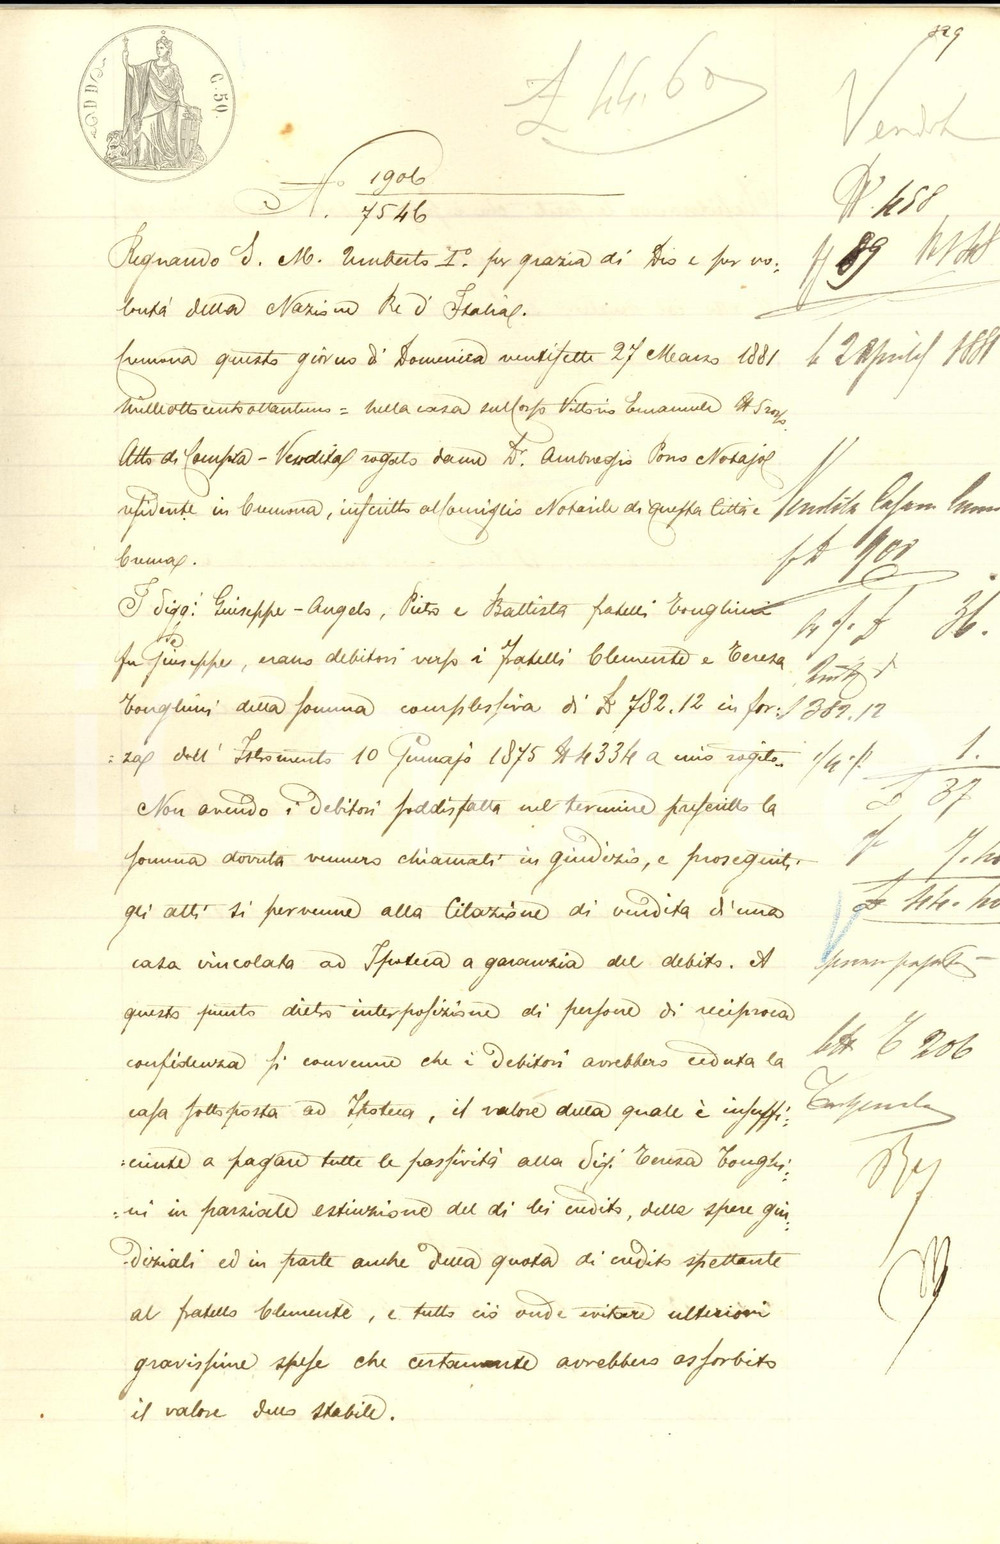 329
L 44.60
N. 1906
7546
C. 50
N. 458
Regnando S. M. Umberto I.° per grazia di Dio e per vo:
lontà della Nazione Re d'Italia.
Cremona questo giorno di Domenica ventisette 27 Marzo 1881
milleottocentottantuno = nella casa sul Corso Vittorio Emanuele N
Atto di Compra - Vendita rogato da me Dr. Ambrogio Pono Notajo
residente in Cremona, inscritto al Consiglio Notarile di questa Città e
Crema.
I Sigg.i Giuseppe - Angelo, Pietro e Battista fratelli Tonghini
fu Giuseppe, erano debitori verso i fratelli Clemente e Teresa
Tonghini della somma complessiva di L 782.12 in for:
:za dell'Istromento 10 Gennajo 1875 N 4334 a mio rogito.
Non avendo i debitori soddisfatta nel termine prescritto la
somma dovuta vennero chiamati in giudizio, e proseguiti
gli atti si pervenne alla Citazione di vendita d'una
casa vincolata ad Ipoteca a garanzia del debito. A
questo punto dietro interposizione di persone di reciproca
confidenza si convenne che i debitori avrebbero ceduta la
casa sottoposta ad Ipoteca, il valore della quale è insuffi:
:ciente a pagare tutte le passività alla Sig.a Teresa Tonghi:
:ni in parziale estinzione del di lei credito, delle spese giu:
diziali ed in parte anche della quota di credito spettante
al fratello Clemente, e tutto ciò onde evitare ulteriori
gravissime spese che certamente avrebbero assorbito
il valore dello stabile.
89
li 2 Aprile 1881
Vendita
908
36.
382.12
1.
L 37
206